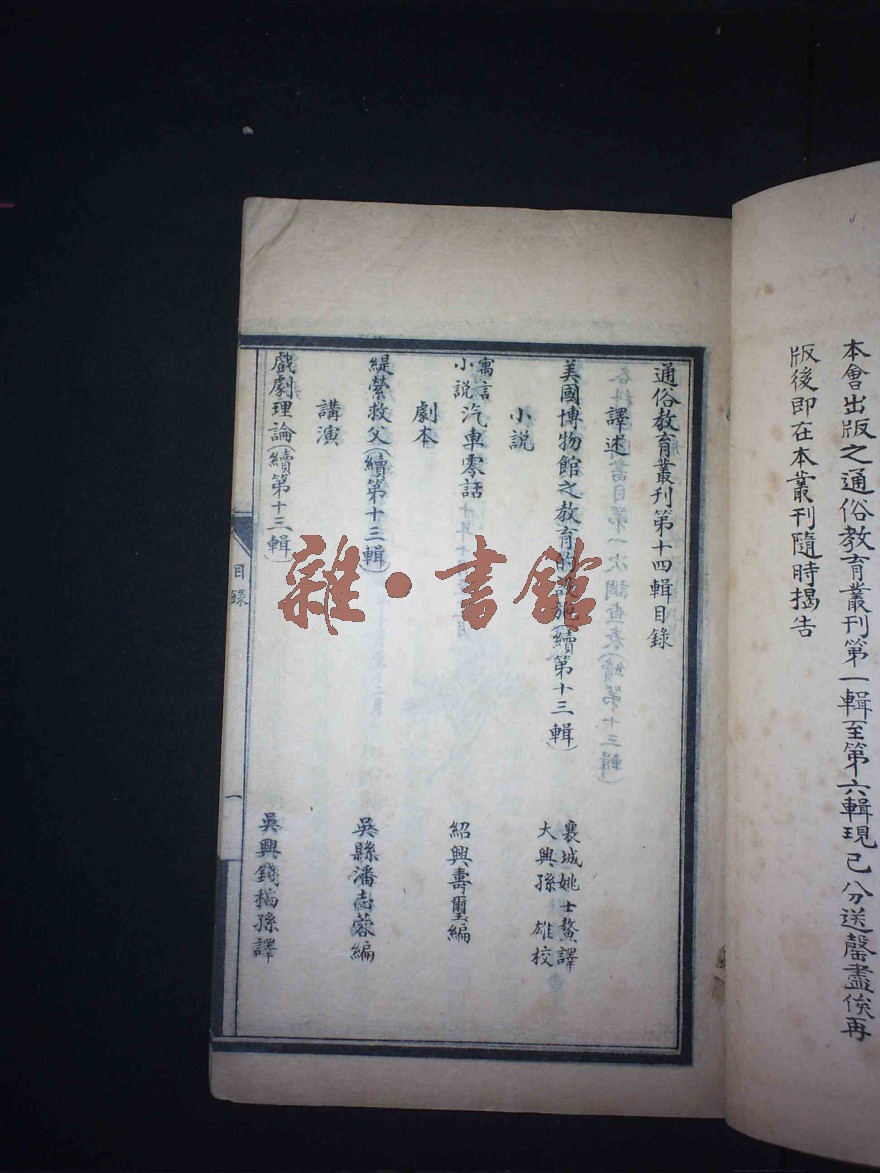 本會出版之通俗教育叢刊第一輯至第六輯現已分送罄盡俟再
版後即在本叢刊隨時揭告
通俗教育叢刊第十四輯目錄
譯述
美國博物館之教育的設施(續第十三輯)
襄城姚士鰲譯
大興孫雄校
小說
寓言小說 汽車零話
紹興壽璽編
劇本
緹縈救父(續第十三輯)
吳縣潘志蓉編
講演
戲劇理論(續第十三輯)
吳興錢稻孫譯
目錄
一
雜·書館